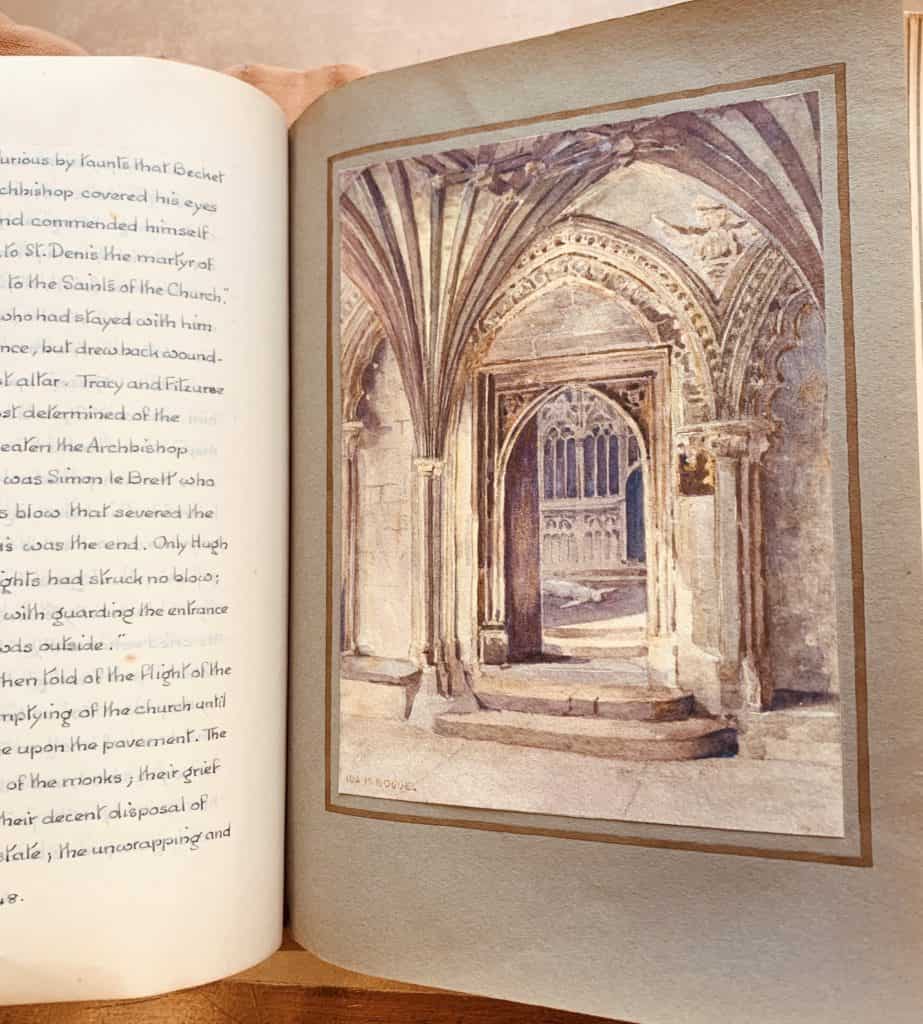 urious by taunts that Becket
chbishop covered his eyes
nd commended himself
to St. Denis the martyr of
to the Saints of the Church."
who had stayed with him
nce, but drew back wound-
st altar. Tracy and Fitzurse
ost determined of the
eaten the Archbishop
was Simon le Brett who
s blow that severed the
is was the end. Only Hugh
ghts had struck no blow;
with guarding the entrance
wds outside."
hen told of the flight of the
mptying of the church until
e upon the pavement. The
of the monks; their grief
heir decent disposal of
state; the unwrapping and
48.